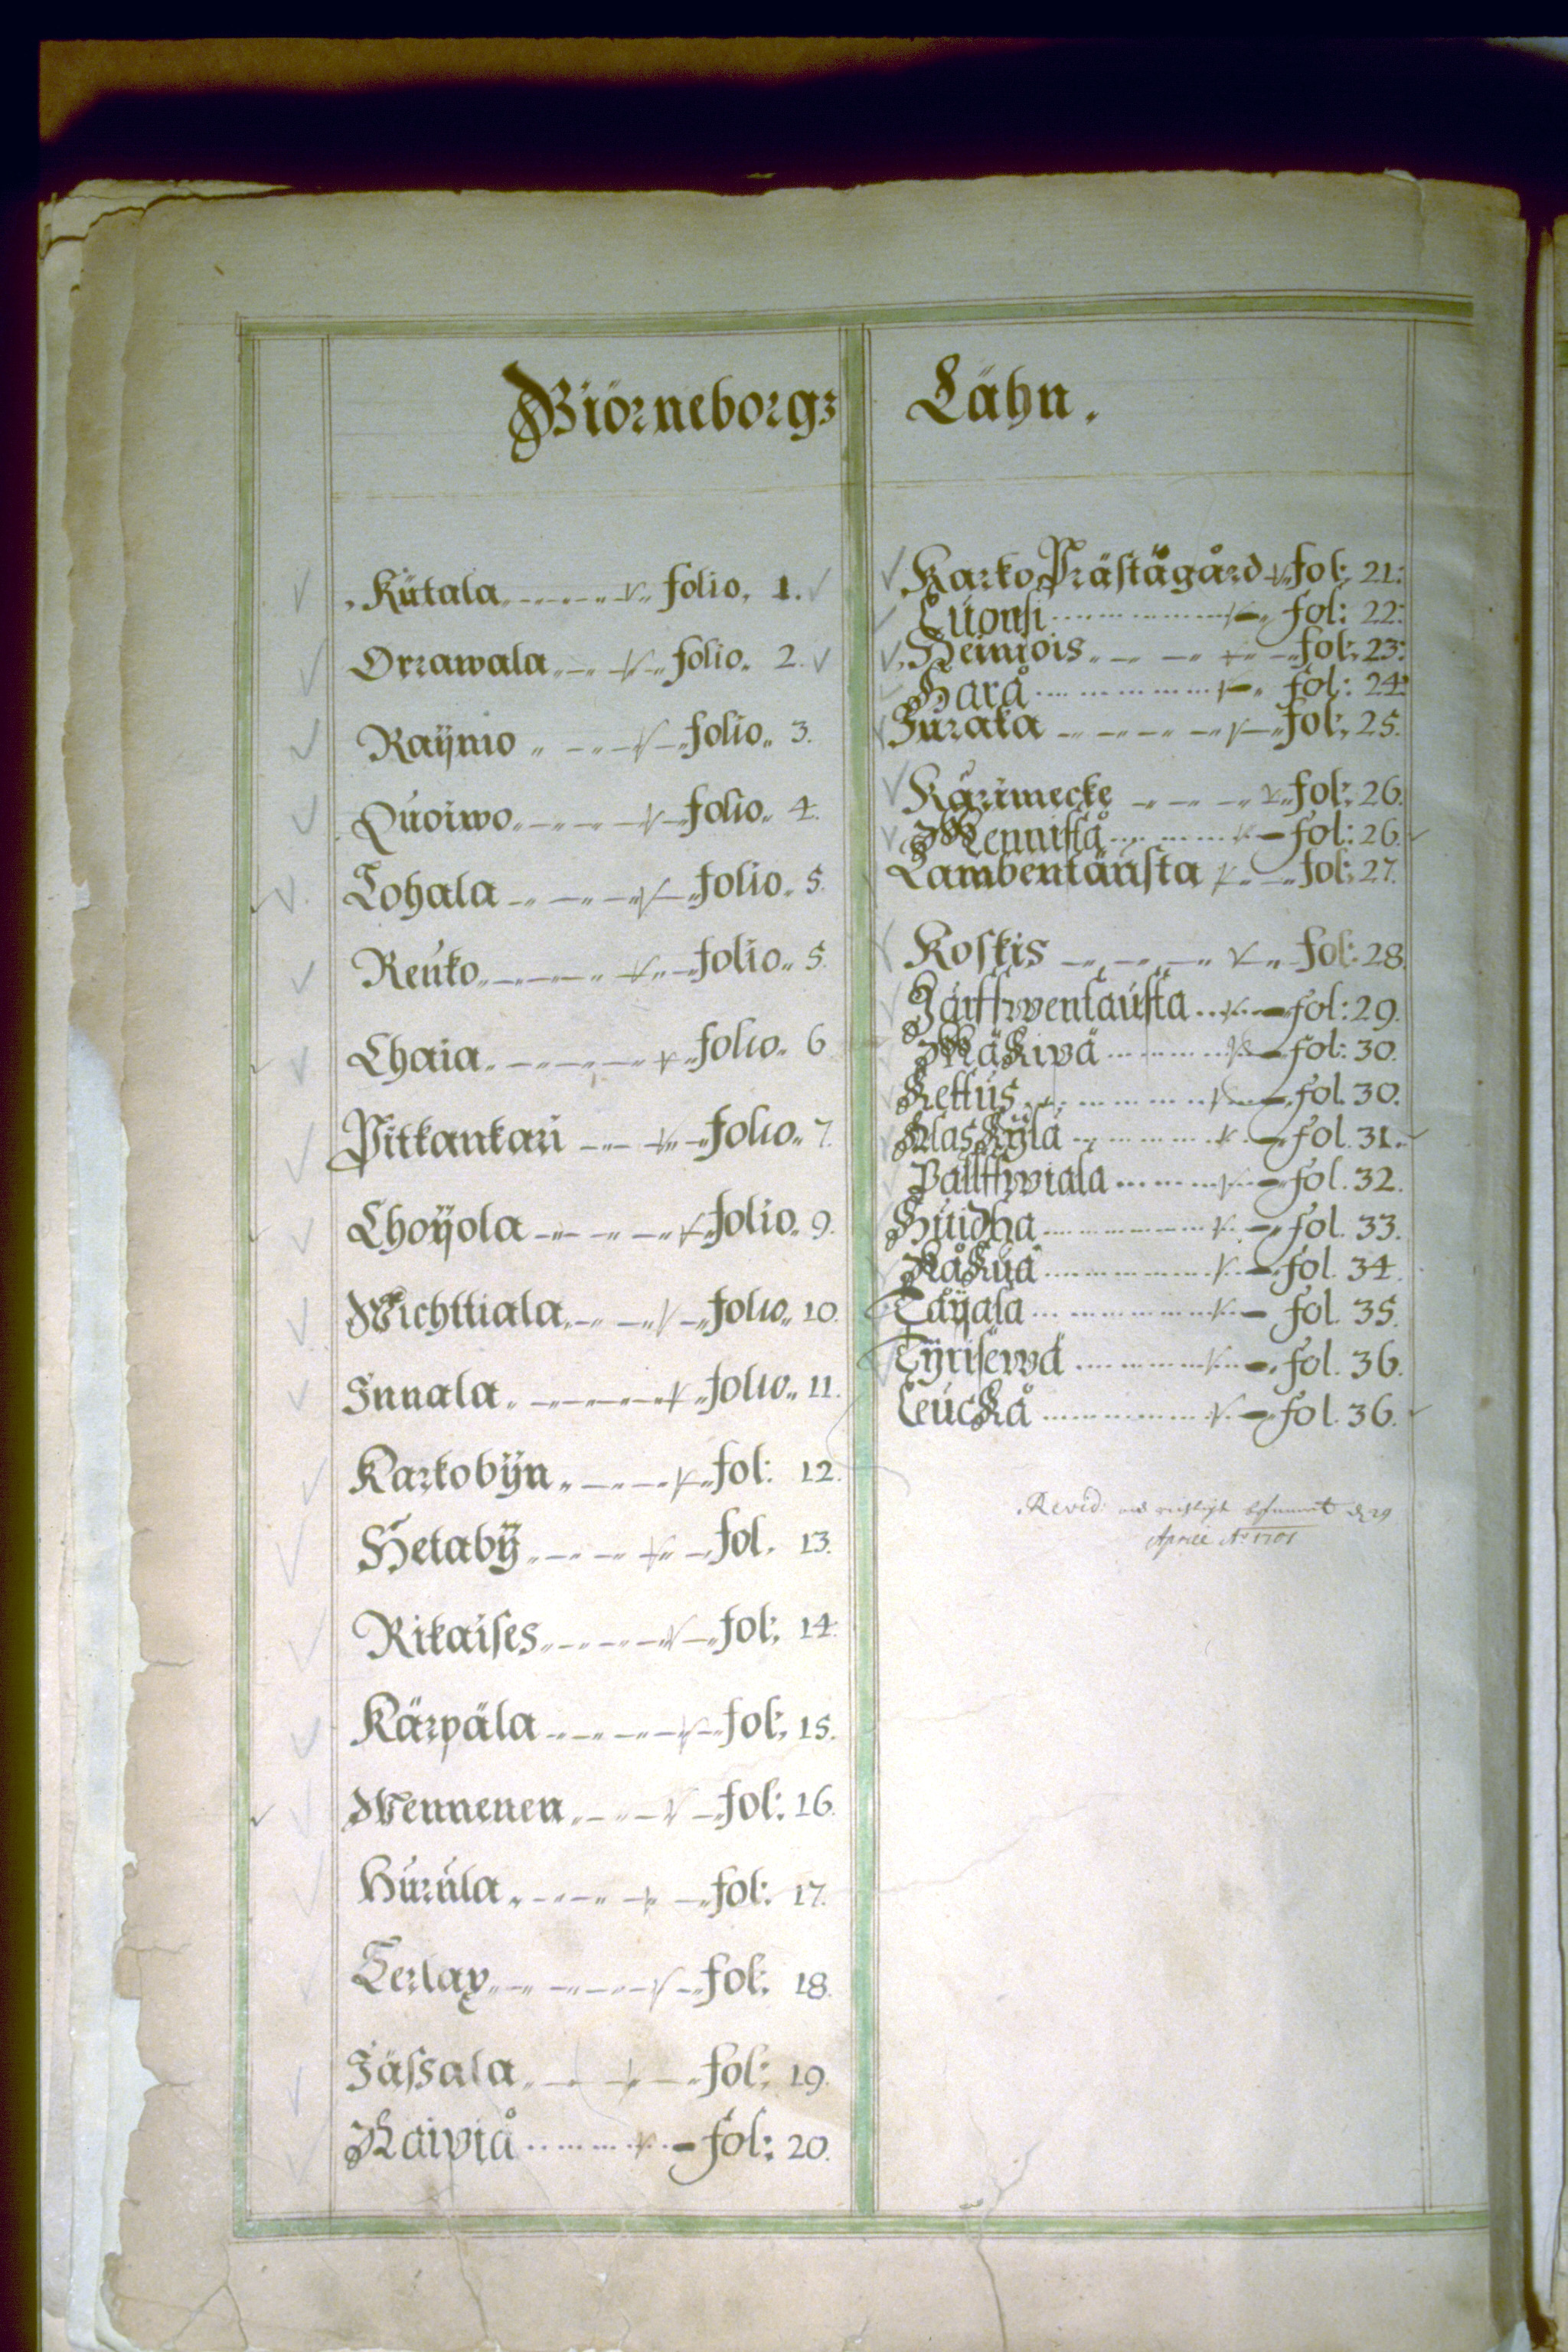 Biörneborgz Lähn.
Kütala folio. 1.
Orrawala folio. 2.
Raÿnio folio. 3.
Quoiwo folio. 4.
Lohala folio. 5.
Reuko folio. 5.
Chaia folio. 6
Pitkankari folio. 7.
Choÿola folio. 9.
Wichttiala folio. 10.
Innala folio. 11.
Karkobÿn fol: 12.
Hetabÿ fol. 13.
Rikaises fol: 14.
Kärpäla fol: 15.
Wennenen fol: 16.
Hurula fol: 17.
Jässala fol: 19.
Raipiå fol: 20.
Karko Prästägård fol: 21:
Luonsi fol: 22:
Heiniois fol: 23:
Harå fol: 24:
Juraka fol: 25.
Kärimecke fol: 26.
Mennistå fol: 26.
Lambentausta fol: 27.
Koskis fol: 28.
Järffwentausta fol: 29.
Mäkipä fol: 30.
Kettus fol. 30.
Alaskÿla fol. 31.
Pallffwiala fol. 32.
Huidha fol. 33.
Taÿala fol. 35.
Tÿrisewä fol. 36.
Leuckå fol. 36.
Revid: och richtigt befunnit d. 29
Aprill Ao 1701